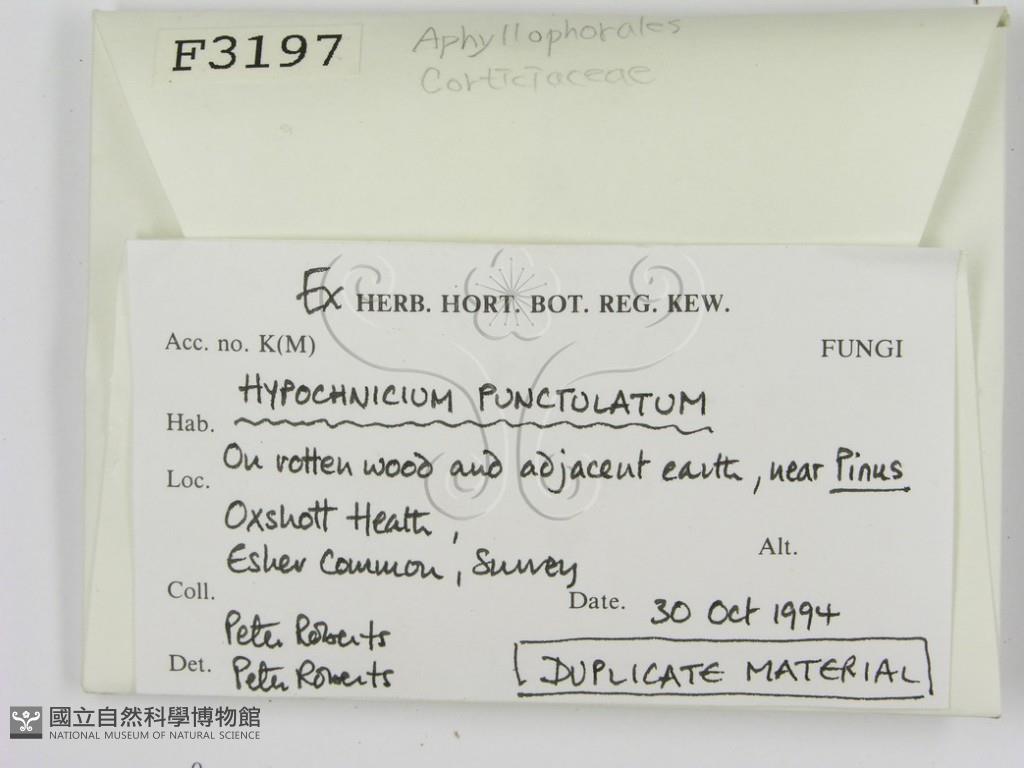 F3197
Aphyllophorales
Corticiaceae
Ex HERB. HORT. BOT. REG. KEW.
Acc. no. K(M)
FUNGI
HYPOCHNICIUM PUNCTULATUM
Hab.
On rotten wood and adjacent earth, near Pinus
Loc.
Oxshott Heath,
Esher Common, Surrey
Alt.
Coll.
Peter Roberts
Date. 30 Oct 1994
Det. Peter Roberts
DUPLICATE MATERIAL
國立自然科學博物館
NATIONAL MUSEUM OF NATURAL SCIENCE